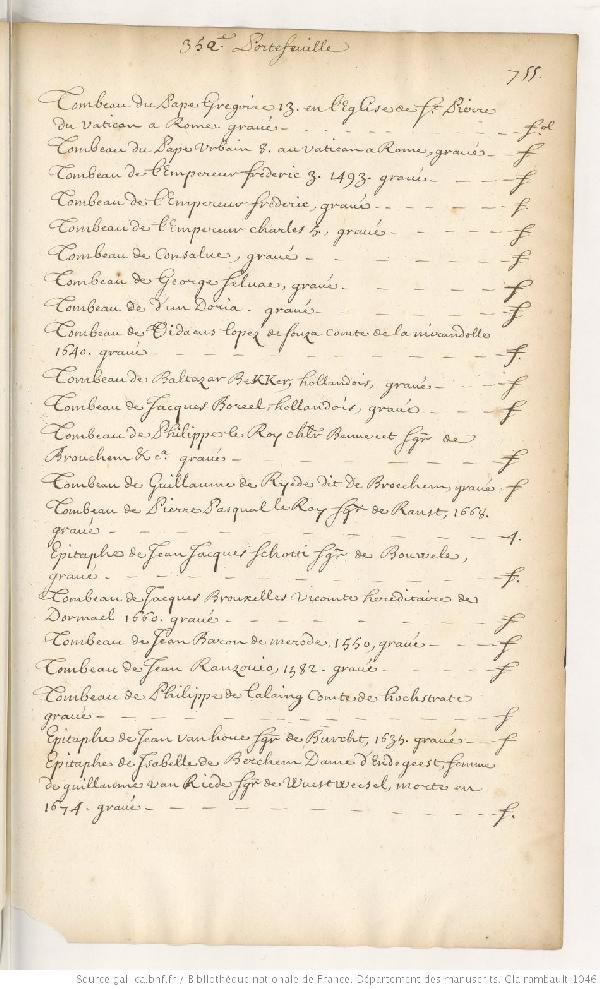 352e Portefeuille
755.
Tombeau du Pape Gregoire 13. en l'Eglise de St. Pierre
du Vatican a Rome. gravé - fol
Tombeau du Pape Urbain 8. au Vatican a Rome, gravé - f
Tombeau de l'Empereur frederic 3. 1493. gravé - f
Tombeau de l'Empereur frederic, gravé - f.
Tombeau de l'Empereur charles 5, gravé - f
Tombeau de Consalve, gravé - f
Tombeau de George Selvae, gravé. - f
Tombeau de d'un Doria. gravé - f
Tombeau de Didacus lopez de souza comte de la mirandolle
1640. gravé - f.
Tombeau de Baltazar BeKKer, hollandois, gravé - f
Tombeau de Jacques Boreel, hollandois, gravé - f
Tombeau de Philippe le Roy chlr Banneret sgr de
Brouchem &c. gravé - f
Tombeau de Guillaume de Ryede dit de Broechem, gravé. f
Tombeau de Pierre Pasqual le Roy sgr de Ranst, 1668.
gravé - f.
Epitaphe de Jean Jacques Schotti sgr de Bouwele,
gravé. - f.
Tombeau de Jacques Brouxelles Vicomte hereditaire de
Dormael 1660. gravé - f
Tombeau de Jean Baron de merode, 1550, gravé - f
Tombeau de Jean Ranzovio, 1582. gravé - f
Tombeau de Philippe de Lalaing Comte de hochstrate
gravé - f
Epitaphe de Jean van houe sgr de Burcht, 1635. gravé - f
Epitaphe de Isabelle de Berchem Dame d'Endegeest, femme
de guillaume van Riede sgr de Wuestwesel, morte en
1674. gravé - f.
Source gallica.bnf.fr / Bibliothèque nationale de France. Département des manuscrits. Clairambault 1046